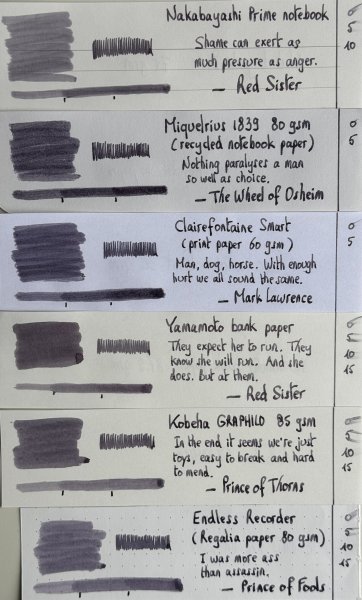 Nakabayashi Prime notebook
Shame can exert as
much pressure as anger.
— Red Sister
0
5
10
Miquelrius 1839 80 gsm
(recycled notebook paper)
Nothing paralyses a man
so well as choice.
— The Wheel of Osheim
0
5
Clairefontaine Smart
(print paper 60 gsm)
Man, dog, horse. With enough
hurt we all sound the same.
— Mark Lawrence
0
5
Yamamoto bank paper
They expect her to run. They
know she will run. And she
does. But at them.
— Red Sister
0
5
10
15
Kobeha GRAPHILO 85 gsm
In the end it seems we're just
toys, easy to break and hard
to mend.
— Prince of Thorns
0
5
10
15
Endless Recorder
(Regalia paper 80 gsm)
I was more ass
than assassin.
— Prince of Fools
0
5
10
15